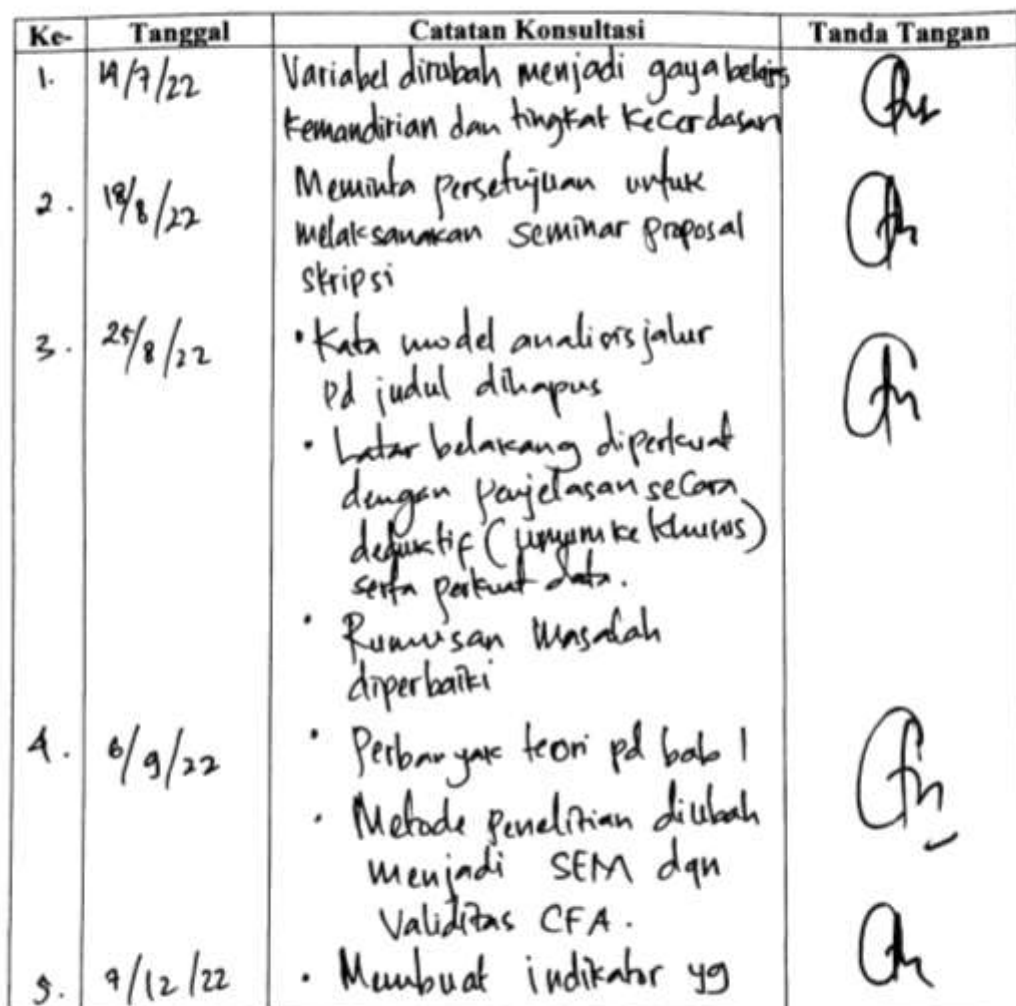 Ke- Tanggal Catatan Konsultasi Tanda Tangan
1. 14/7/22 Variabel dirubah menjadi gaya belajar
kemandirian dan tingkat kecerdasan
2. 18/8/22 Meminta persetujuan untuk
melaksanakan seminar proposal
skripsi
3. 25/8/22 • Kata model analisis jalur
pd judul dihapus
• Latar belakang diperkuat
dengan penjelasan secara
deduktif (umum ke khusus)
serta perkuat data.
• Rumusan Masalah
diperbaiki
4. 6/9/22 • Perbanyak teori pd bab 1
• Metode penelitian diubah
menjadi SEM dan
Validitas CFA.
5. /12/22 • Membuat indikator yg